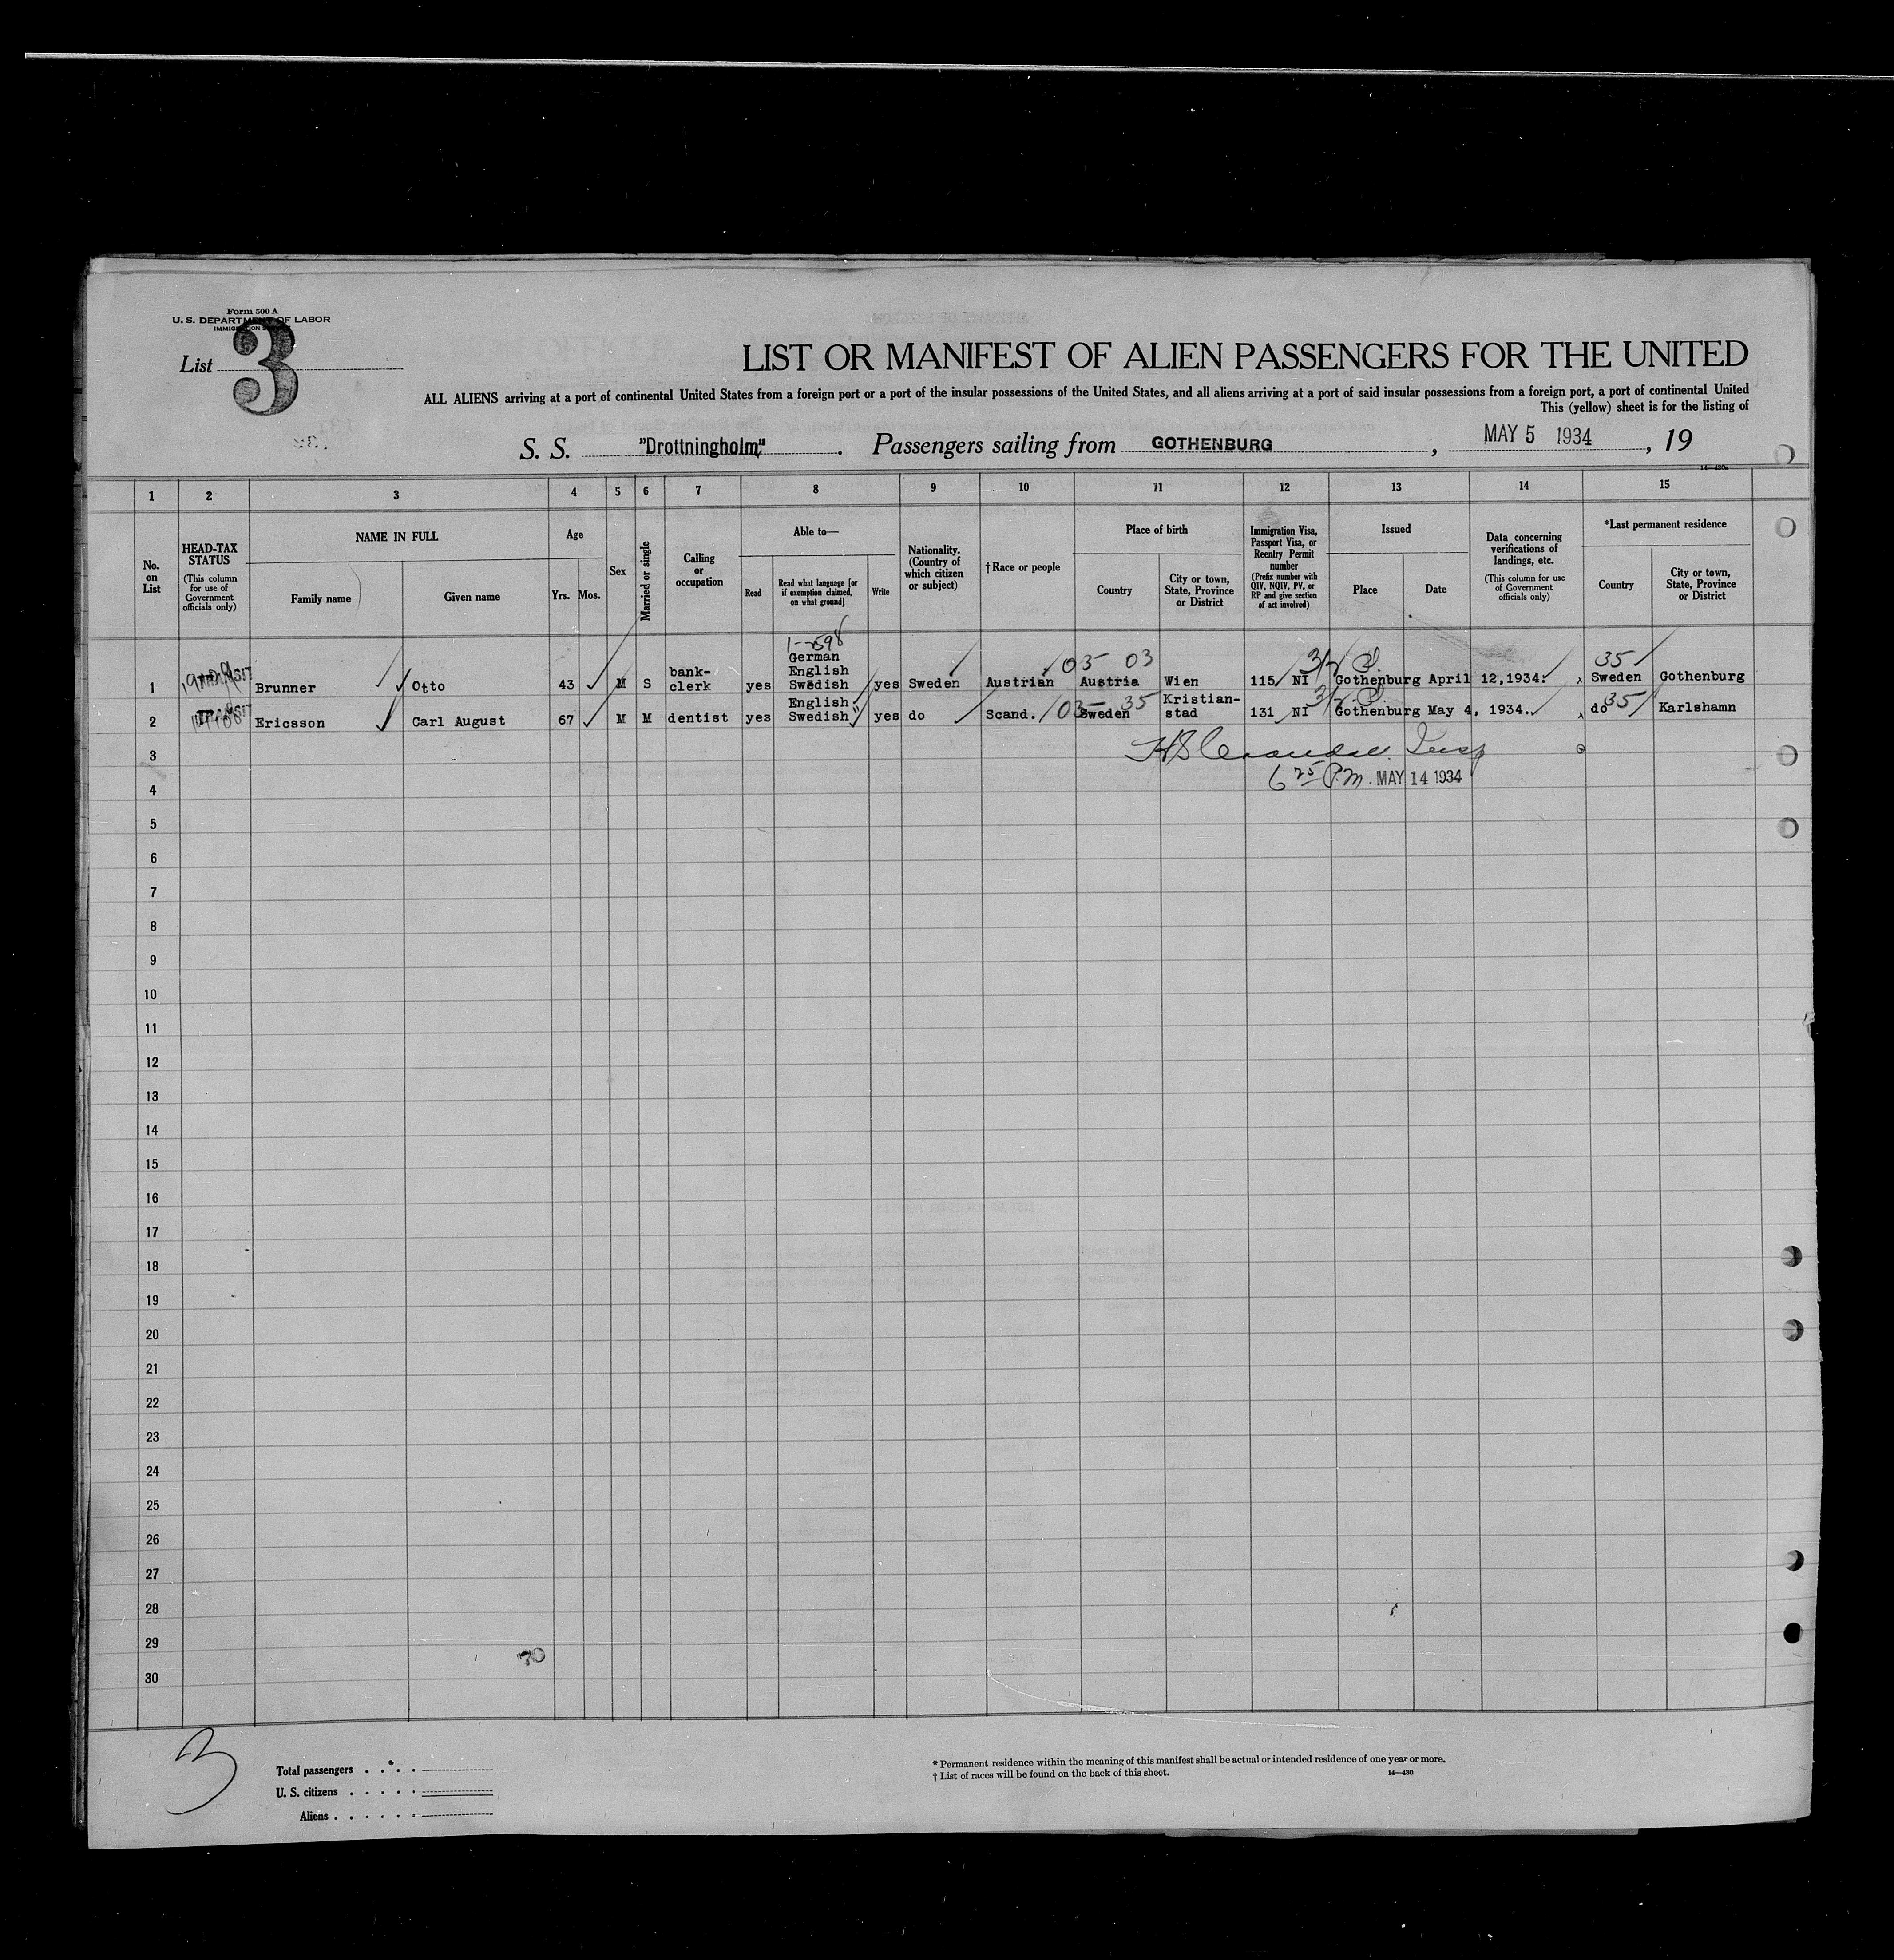 Form 500 A
U. S. DEPARTMENT OF LABOR
List 3
LIST OR MANIFEST OF ALIEN PASSENGERS FOR THE UNITED
ALL ALIENS arriving at a port of continental United States from a foreign port or a port of the insular possessions of the United States, and all aliens arriving at a port of said insular possessions from a foreign port, a port of continental United
This (yellow) sheet is for the listing of
S. S. "Drottningholm" . Passengers sailing from GOTHENBURG , MAY 5 1934 , 19
14—430a
1 2 3 4 5 6 7 8 9 10 11 12 13 14 15
No. on List
HEAD-TAX STATUS
(This column for use of Government officials only)
NAME IN FULL
Family name
Given name
Age
Yrs.
Mos.
Sex
Married or single
Calling or occupation
Able to—
Read
Read what language [or if exemption claimed, on what ground]
Write
Nationality. (Country of which citizen or subject)
† Race or people
Place of birth
Country
City or town, State, Province or District
Immigration Visa, Passport Visa, or Reentry Permit number
(Prefix number with QIV, NQIV, PV, or RP and give section of act involved)
Issued
Place
Date
Data concerning verifications of landings, etc.
(This column for use of Government officials only)
*Last permanent residence
Country
City or town, State, Province or District
1 Brunner Otto 43 M S bank-clerk yes German English Swedish yes Sweden Austrian 05 03 Austria Wien 115 NI Gothenburg April 12,1934. 35 Sweden Gothenburg
2 TRANSIT Ericsson Carl August 67 M M dentist yes English Swedish yes do Scand. 05 35 Sweden Kristian-stad 131 NI Gothenburg May 4, 1934. do 35 Karlshamn
3
4 6 25 P.M. MAY 14 1934
5
6
7
8
9
10
11
12
13
14
15
16
17
18
19
20
21
22
23
24
25
26
27
28
29
30
70
3
Total passengers
U. S. citizens
Aliens
* Permanent residence within the meaning of this manifest shall be actual or intended residence of one year or more.
† List of races will be found on the back of this sheet.
14—430